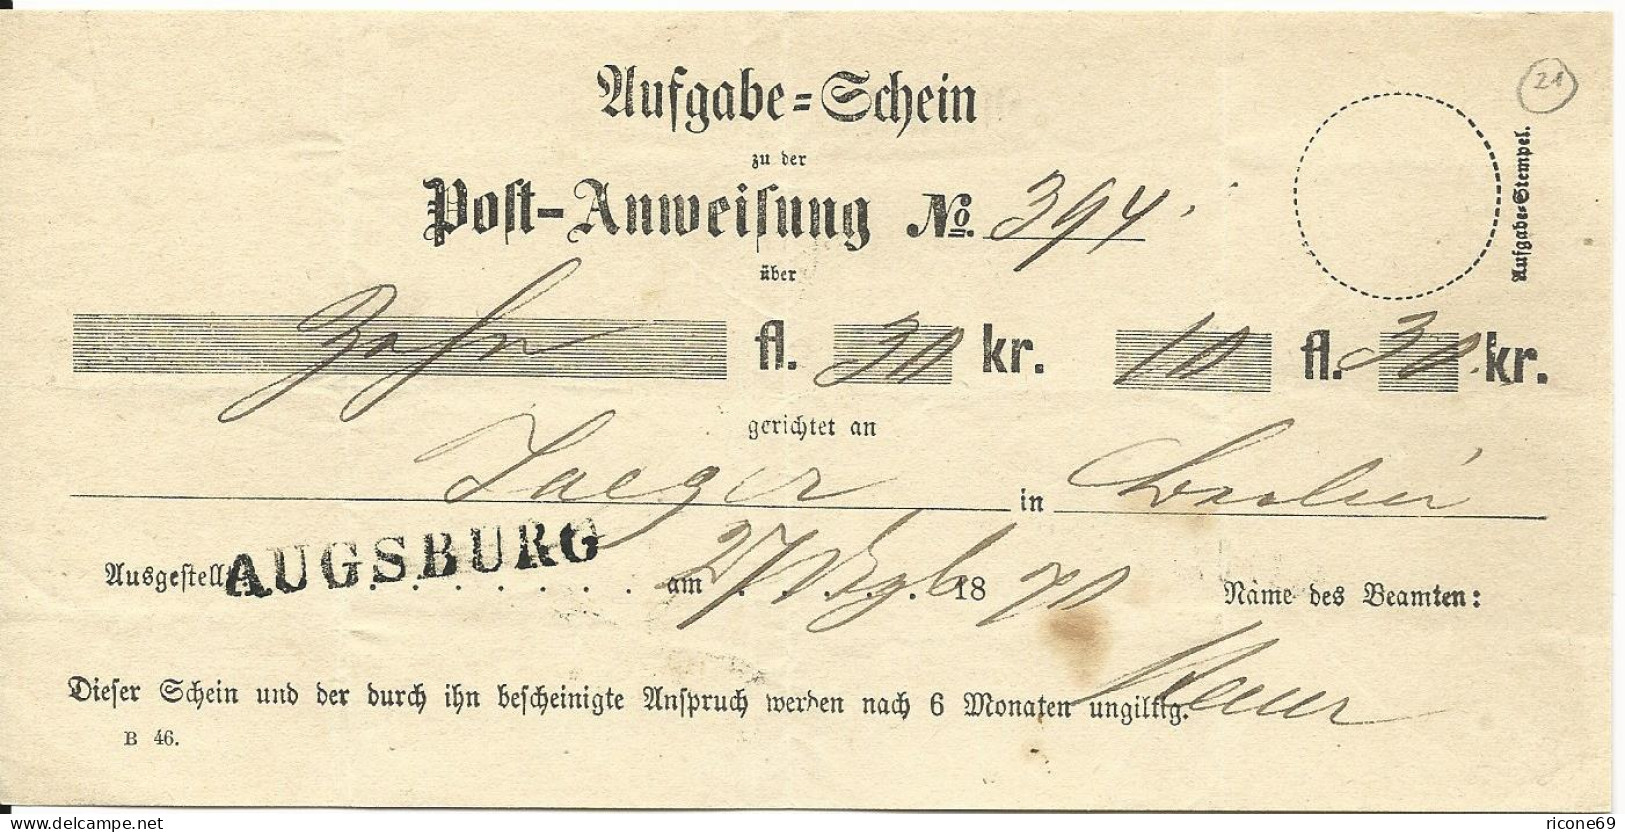 21
Aufgabe-Schein
zu der
Post-Anweisung No. 394.
Aufgabs-Stempel.
über
Zehn fl. 30 kr. 10 fl. 30 kr.
gerichtet an
Jaeger in Berlin
Ausgestellt AUGSBURG am 27 1870 Name des Beamten:
Dieser Schein und der durch ihn bescheinigte Anspruch werden nach 6 Monaten ungiltig.
B 46.
www.delcampe.net
ricone69